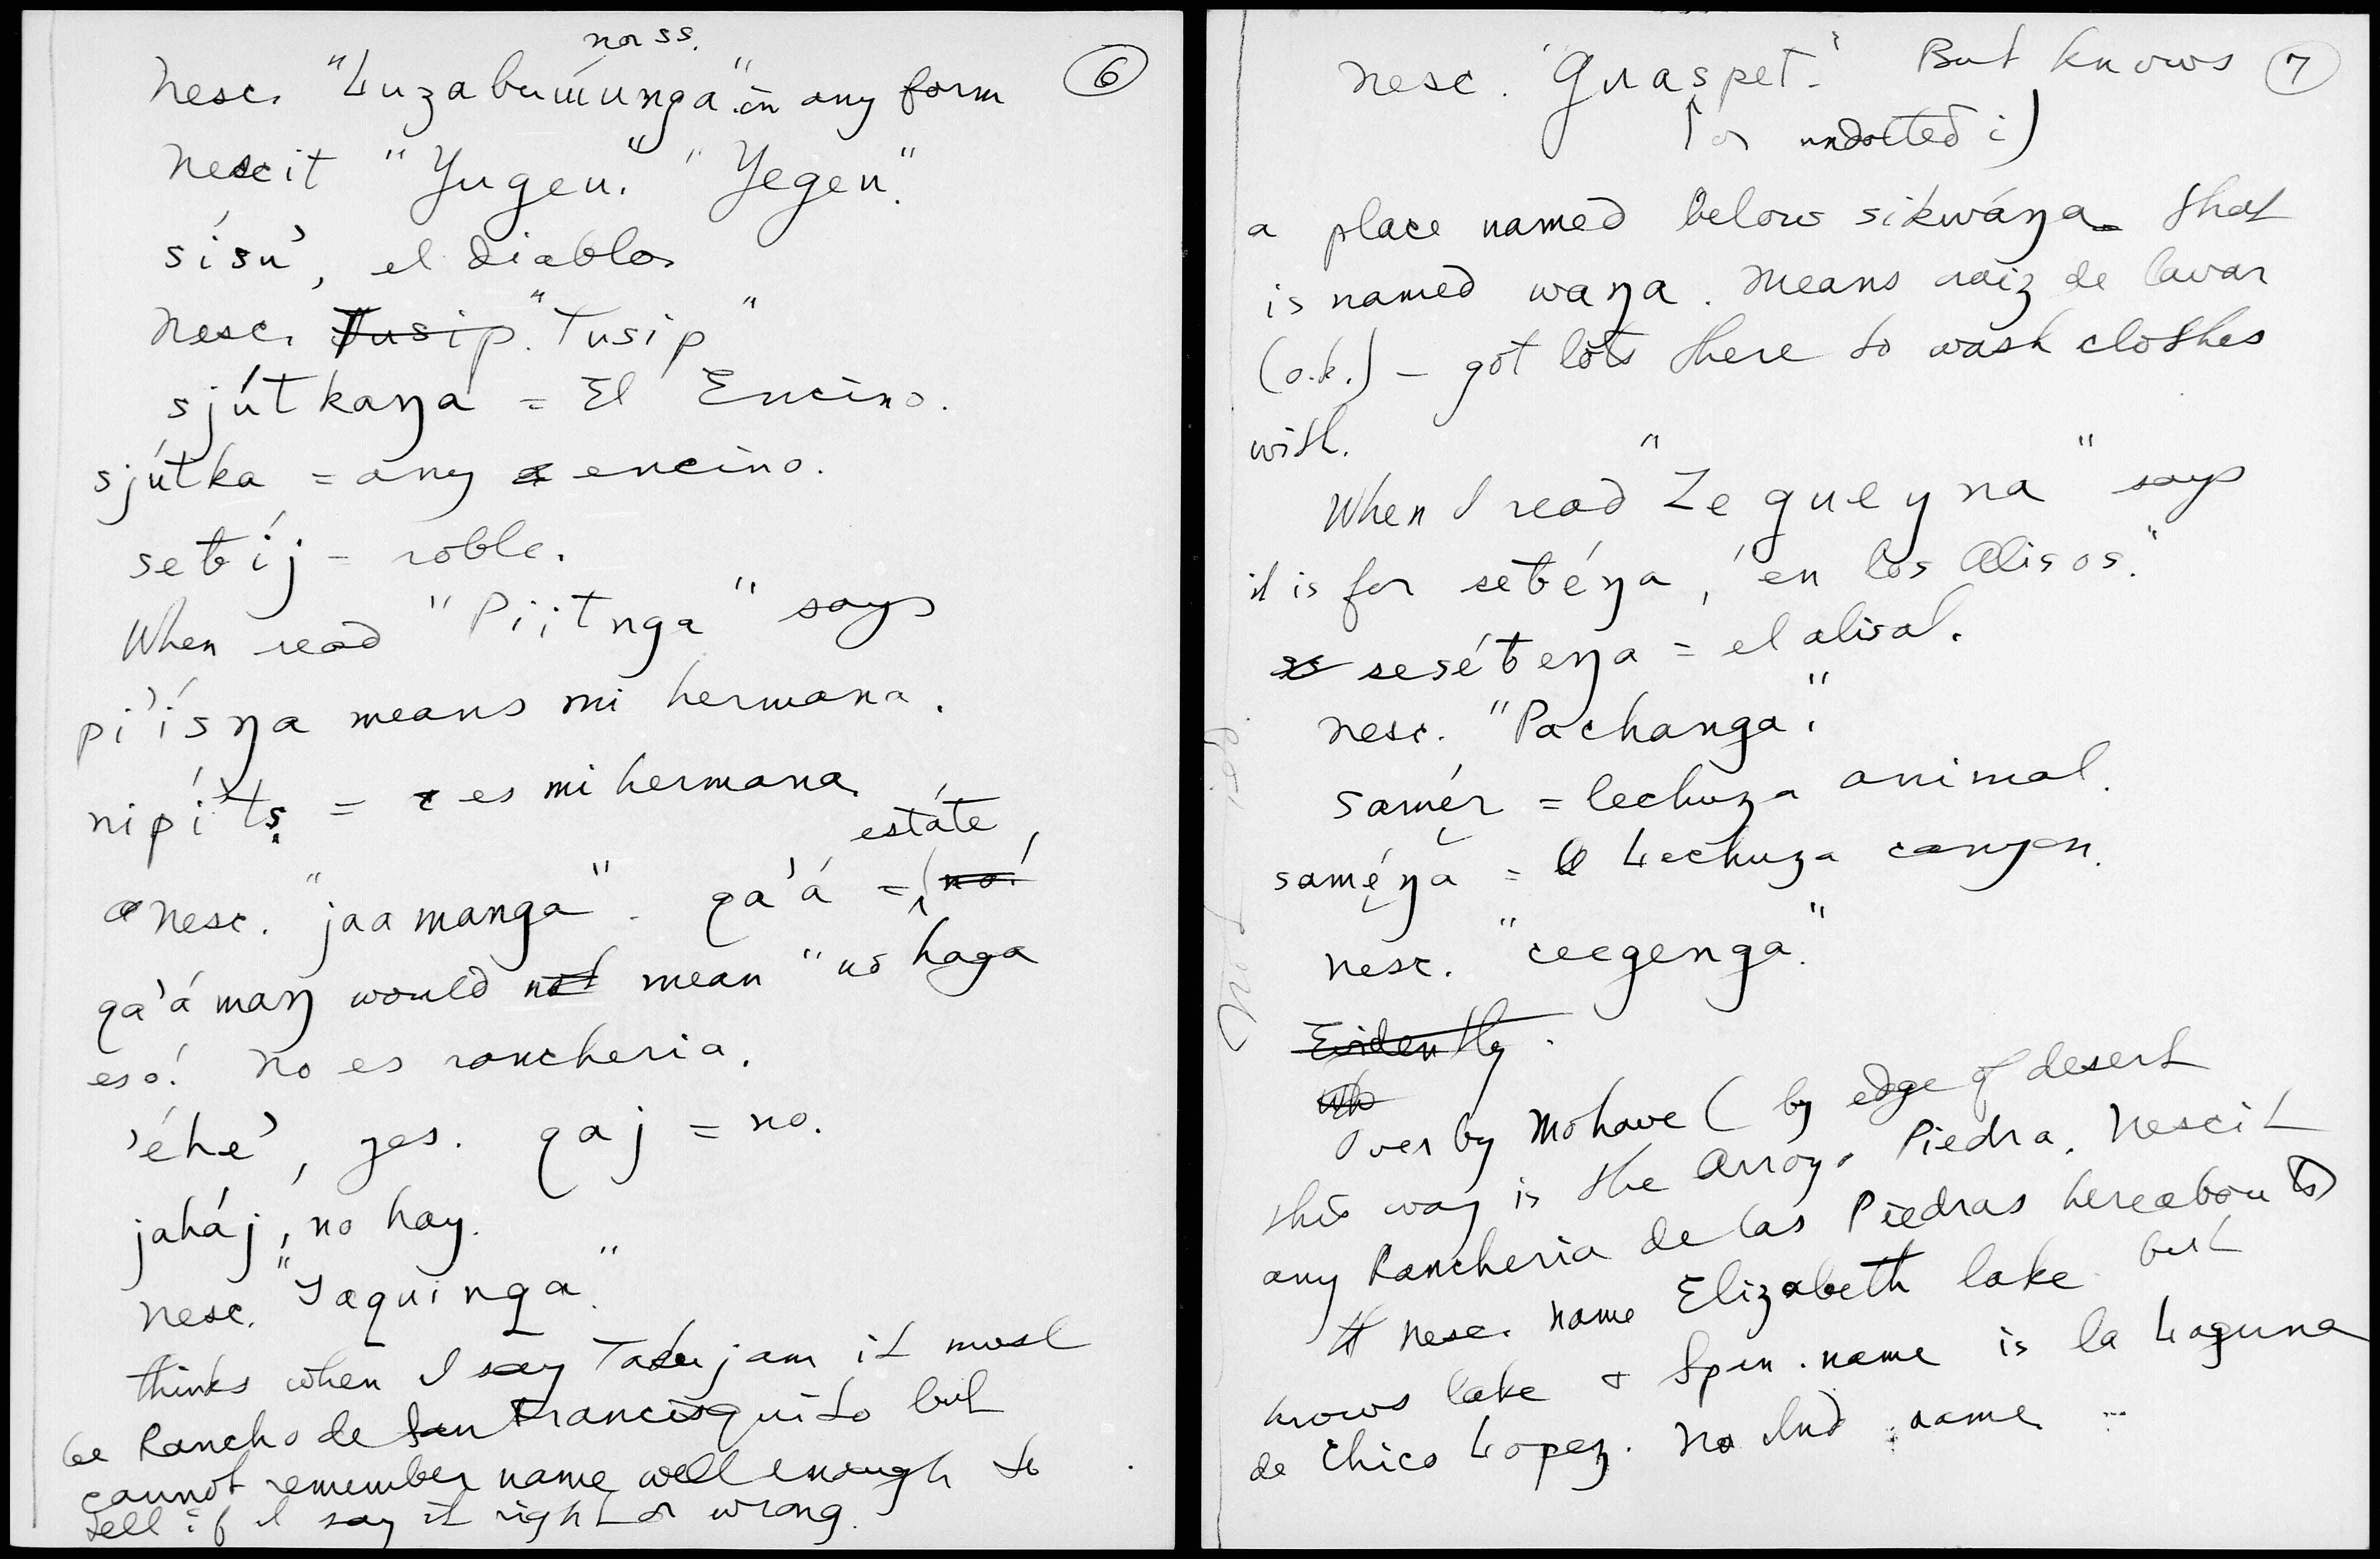 n or ss.
Nesc. "Luzabumúnga" in any form
6
Nescit "Yugeu." "Yegeu."
sísu', el diablo
Nesc. Tusip. "Tusip"
sjútkaŋa = El Encino.
sjútka = any encino.
setíj = roble.
When read "Piitnga" says
pi'ísŋa means mi hermana.
nipí'tṣ = es mi hermana.
estáte
nesc. "jaamanga". qa'á = (no!
qa'á maŋ would not mean "no haga
eso! No es rancheria.
'éhe', yes. qaj = no.
jaháj, no hay.
Nesc. "Yaquinga."
thinks when I say Takujam it must
be Rancho de San Francisquito but
cannot remember name well enough to
tell if I say it right or wrong.
Nesc. "Guaspet." But knows
7
(or undotted i)
a place named below sikwáŋa that
is named waŋa. Means raiz de lavar
(o.k.) - got lots there to wash clothes
with.
When I read "Zegueyna" says
it is for setéŋa, "en los Alisos."
seséteŋa = el alisal.
Nesc. "Pachanga."
samér = lechuza animal.
saméŋa = Lechuza canyon.
Nesc. "ceegenga."
Evidently
Wh
Over by Mohave (by edge of desert
this way is the Arroyo Piedra. Nescit
any Rancheria de las Piedras hereabouts)
Nesc. name Elizabeth lake but
knows lake & Span. name is la Laguna
de Chico Lopez. No Ind name